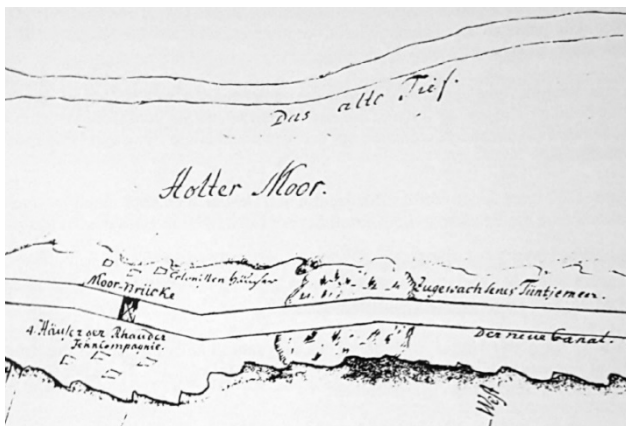 Das alte Tief.
Holter Moor.
Colonisten Häuser
Moor-Brücke
Zugewachsenes Tüntjemeer.
4. Häuser der Rhauder
Fehncompagnie.
Der neue Canal.